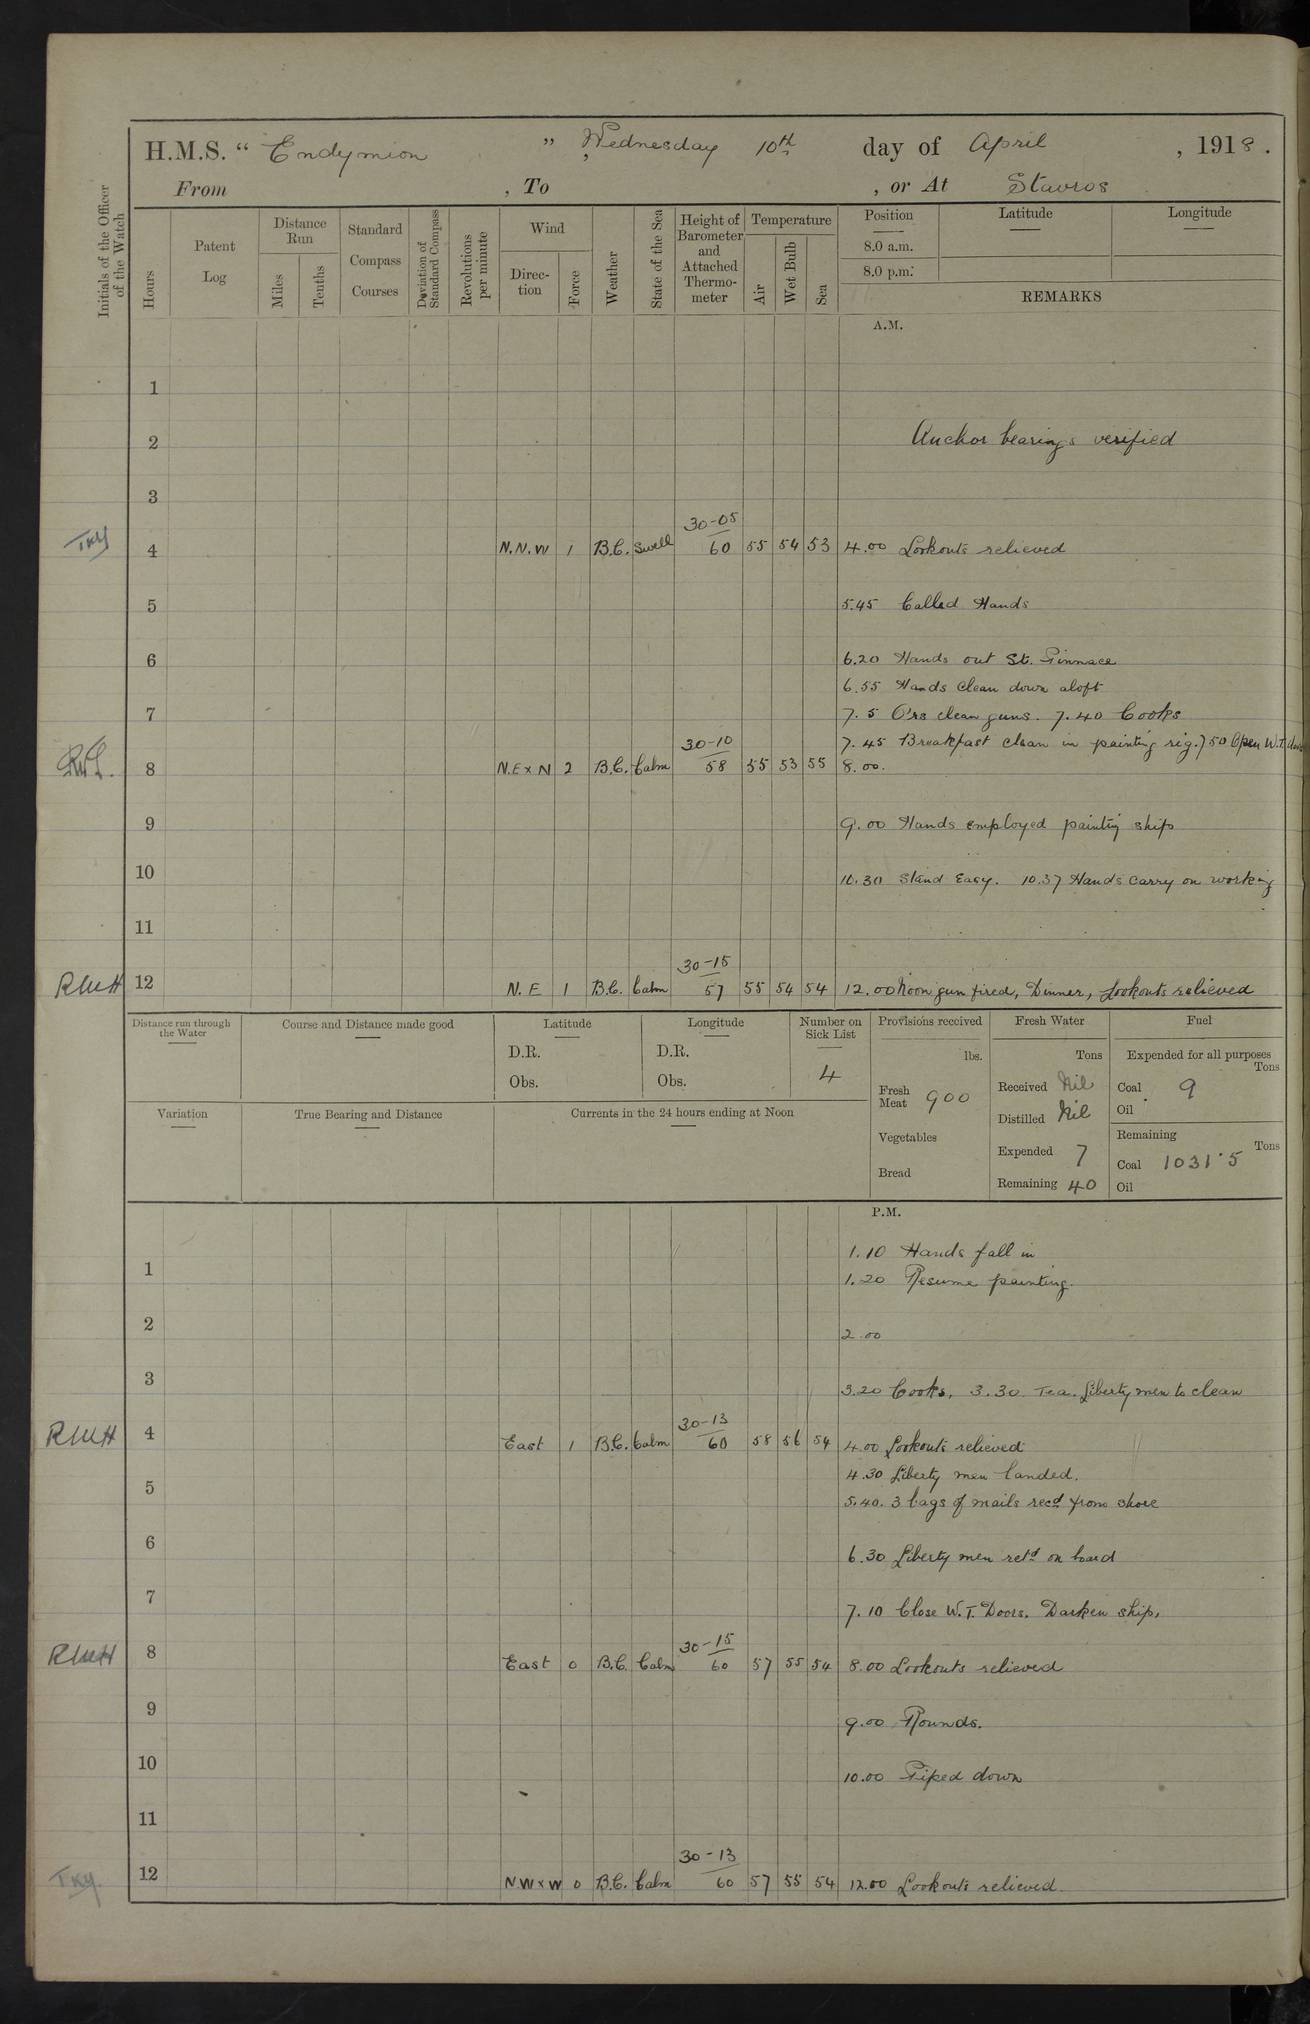 H.M.S. “ Endymion ” Wednesday 10th day of April , 1918 .
From , To , or At Stavros
Initials of the Officer of the Watch
Hours
Patent Log
Distance Run
Miles
Tenths
Standard Compass Courses
Deviation of Standard Compass
Revolutions per minute
Wind
Direc-tion
Force
Weather
State of the Sea
Height of Barometer and Attached Thermo-meter
Temperature
Air
Wet Bulb
Sea
Position
Latitude
Longitude
8.0 a.m.
8.0 p.m.
REMARKS
A.M.
1
2 Anchor bearings verified
3
30-05
TKY 4 N.N.W 1 B.C. Swell 60 55 54 53 4.00 Lookouts relieved
5 5.45 Called Hands
6 6.20 Hands out St. Pinnace
6.55 Hands clean down aloft
7 7.5 O'rs clean guns. 7.40 Cooks
30-10 7.45 Breakfast clean in painting rig. 7 50 Open W.T.
8 N.E x N 2 B.C. Calm 58 55 53 55 8.00.
9 9.00 Hands employed painting ship
10 10.30 Stand Easy. 10.37 Hands carry on working
11
30-15
RWH 12 N.E 1 B.C. Calm 57 55 54 54 12.00 Noon gun fired, Dinner, Lookouts relieved
Distance run through the Water
Course and Distance made good
Latitude
D.R.
Obs.
Longitude
D.R.
Obs.
Number on Sick List
4
Provisions received
lbs.
Fresh Meat 900
Vegetables
Bread
Fresh Water
Tons
Received Nil
Distilled Nil
Expended 7
Remaining 40
Fuel
Expended for all purposes
Tons
Coal 9
Oil
Remaining
Tons
Coal 1031·5
Oil
Variation
True Bearing and Distance
Currents in the 24 hours ending at Noon
P.M.
1.10 Hands fall in
1 1.20 Resume painting.
2 2.00
3 3.20 Cooks. 3.30 Tea. Liberty men to clean
30-13
RWH 4 East 1 B.C. Calm 60 58 56 54 4.00 Lookouts relieved
4.30 Liberty men landed.
5 5.40. 3 bags of mails recd from shore
6 6.30 Liberty men retd on board
7 7.10 Close W.T. Doors. Darken ship.
30-15
RWH 8 East 0 B.C. Calm 60 57 55 54 8.00 Lookouts relieved
9 9.00 Rounds.
10 10.00 Piped down
11
30-13
TKY. 12 NW x W 0 B.C. Calm 60 57 55 54 12.00 Lookouts relieved.